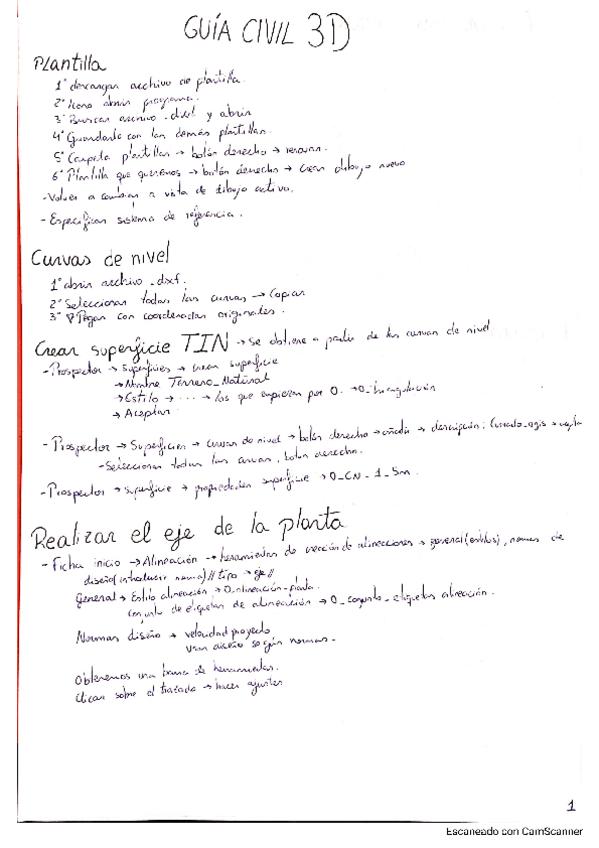 GUÍA CIVIL 3D
Plantilla
1º descargar archivo de plantilla.
2º Icono abrir programa.
3º Buscar archivo .dwt y abrir
4º Guardarla con las demás plantillas.
5º Carpeta plantillas → botón derecho → renovar.
6º Plantilla que queremos → botón derecho → crear dibujo nuevo
- Volver a cambiar a vista de dibujo activo.
- Especificar sistema de referencia.
Curvas de nivel
1º abrir archivo .dxf.
2º Seleccionar todas las curvas → Copiar
3º Pegar con coordenadas originales.
Crear superficie TIN → Se obtiene a partir de las curvas de nivel
- Prospector → Superficies → crear superficie
→ Nombre Terreno_Natural
→ Estilo → ... → los que empiezan por 0. → 0_triangulación
→ Aceptar
- Prospector → Superficies → curvas de nivel → botón derecho → añadir → descripción: → acepta
- Seleccionar todas las curvas, botón derecho.
- Prospector → superficie → propiedades superficie → 0_CN_1_5m.
Realizar el eje de la planta
- Ficha inicio → Alineación → herramientas de creación de alineaciones → general (estilos), normas de
diseño (introducir norma) // tipo → eje //
General → Estilo alineación → 0_alineación_planta
Conjunto de etiquetas de alineación → 0_conjunto_etiquetas alineación.
Normas diseño → velocidad proyecto
usar diseño según normas.
Obtenemos una barra de herramientas.
Clicar sobre el trazado → hacer ajustes
1
Escaneado con CamScanner